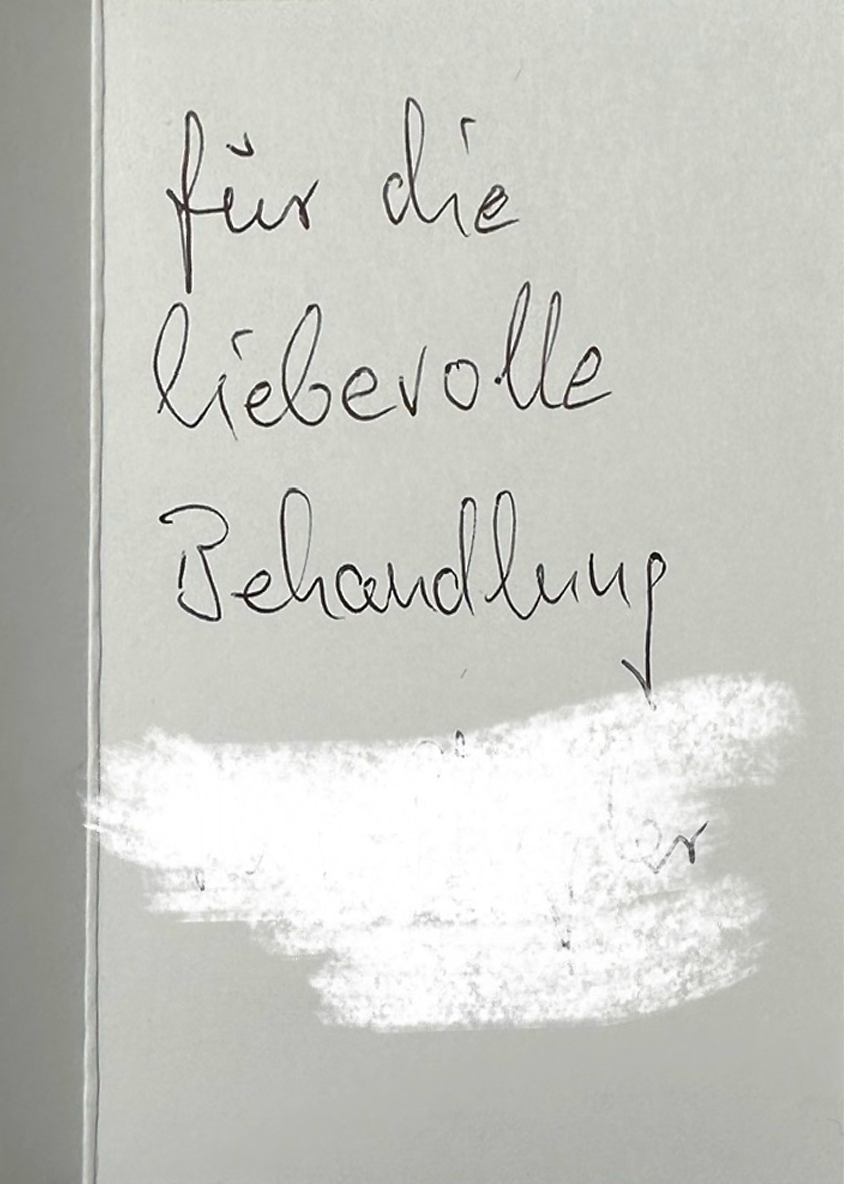 für die
liebevolle
Behandlung